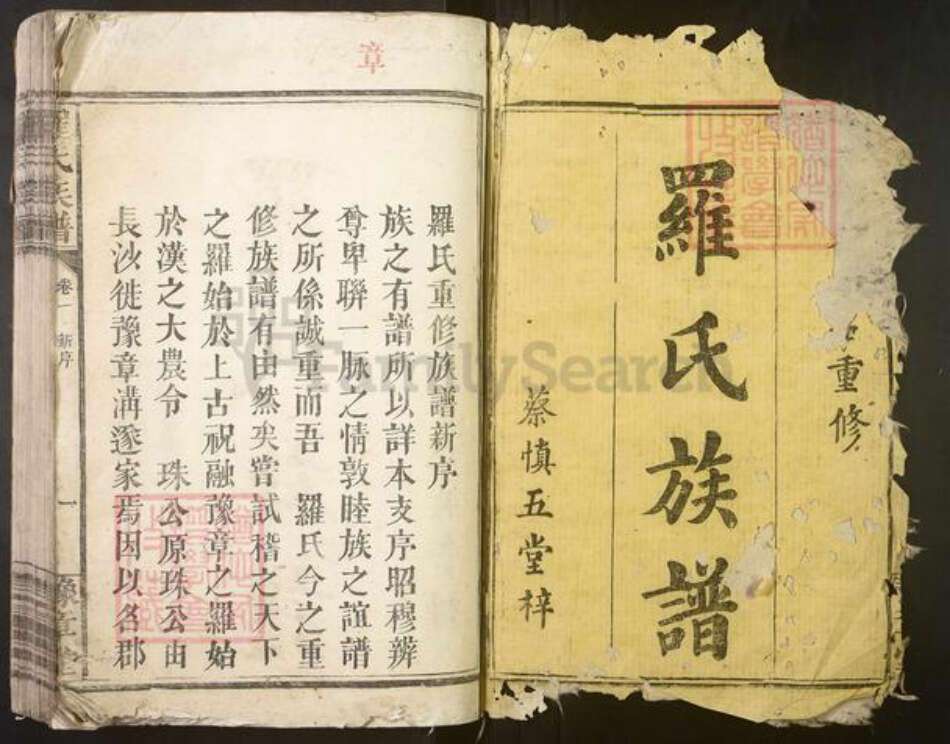 重修
羅氏族譜
蔡慎五堂梓
章
羅氏重修族譜新序
族之有譜所以詳本支序昭穆辨
尊卑聯一脉之情敦睦族之誼譜
之所係誠重而吾 羅氏今之重
修族譜有由然矣嘗試稽之天下
之羅始於上古祝融豫章之羅始
於漢之大農令 珠公原珠公由
長沙徙豫章溝遂家焉因以名郡
羅氏族譜 卷一 新序 一
FamilySearch